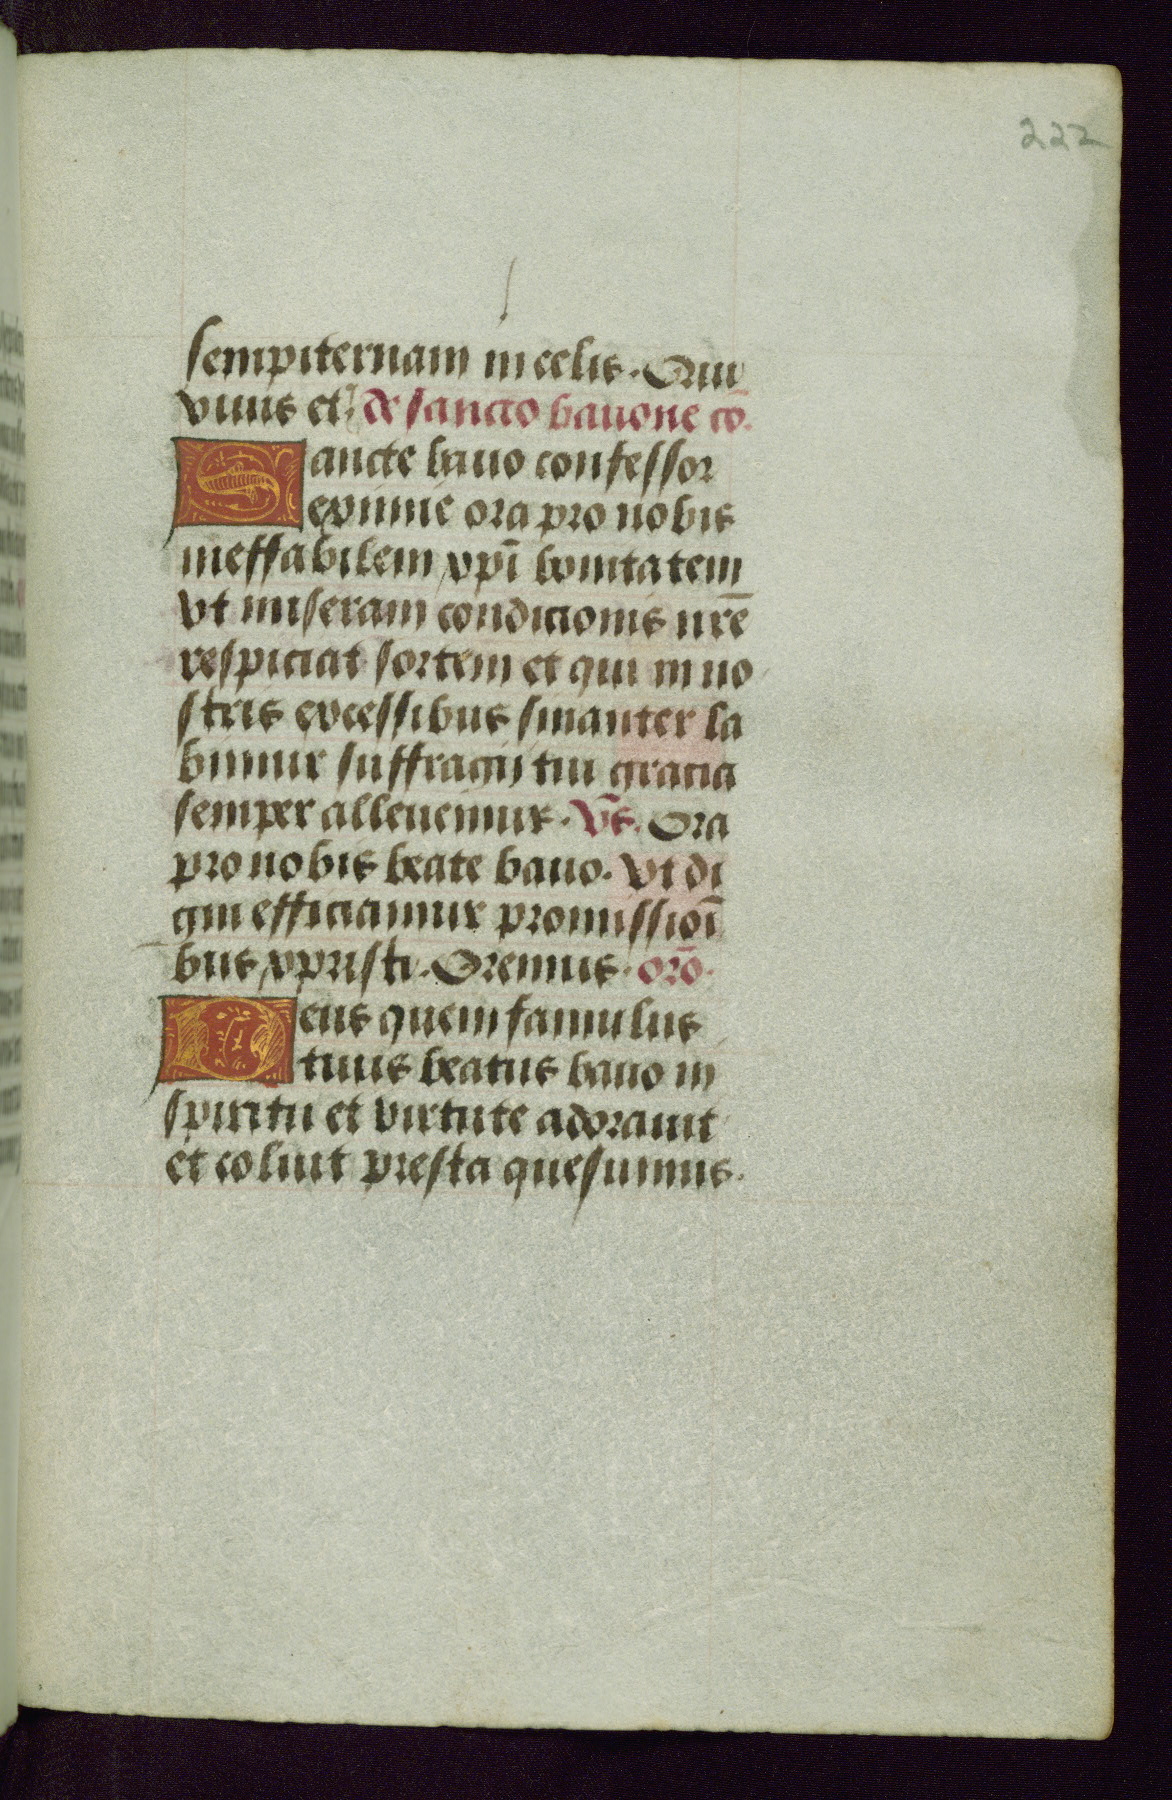 222
sempiternam in celis. Qui
viuis et. de sancto bauone cō.
Sancte bauo confessor
eximie ora pro nobis
ineffabilem xpī bonitatem
vt miseram condicionis nrē
respiciat sortem et qui in no
stris excessibus sinanter la
bimur suffragij tui gracia
semper alleuemur. Vs̄. Ora
pro nobis beate bauo. Vt di
gni efficiamur promissioī
bus xpristi. Oremus. orō.
Deus quem famulus
tuus beatus bauo in
spiritu et virtute adorauit
et coluit presta quesumus.